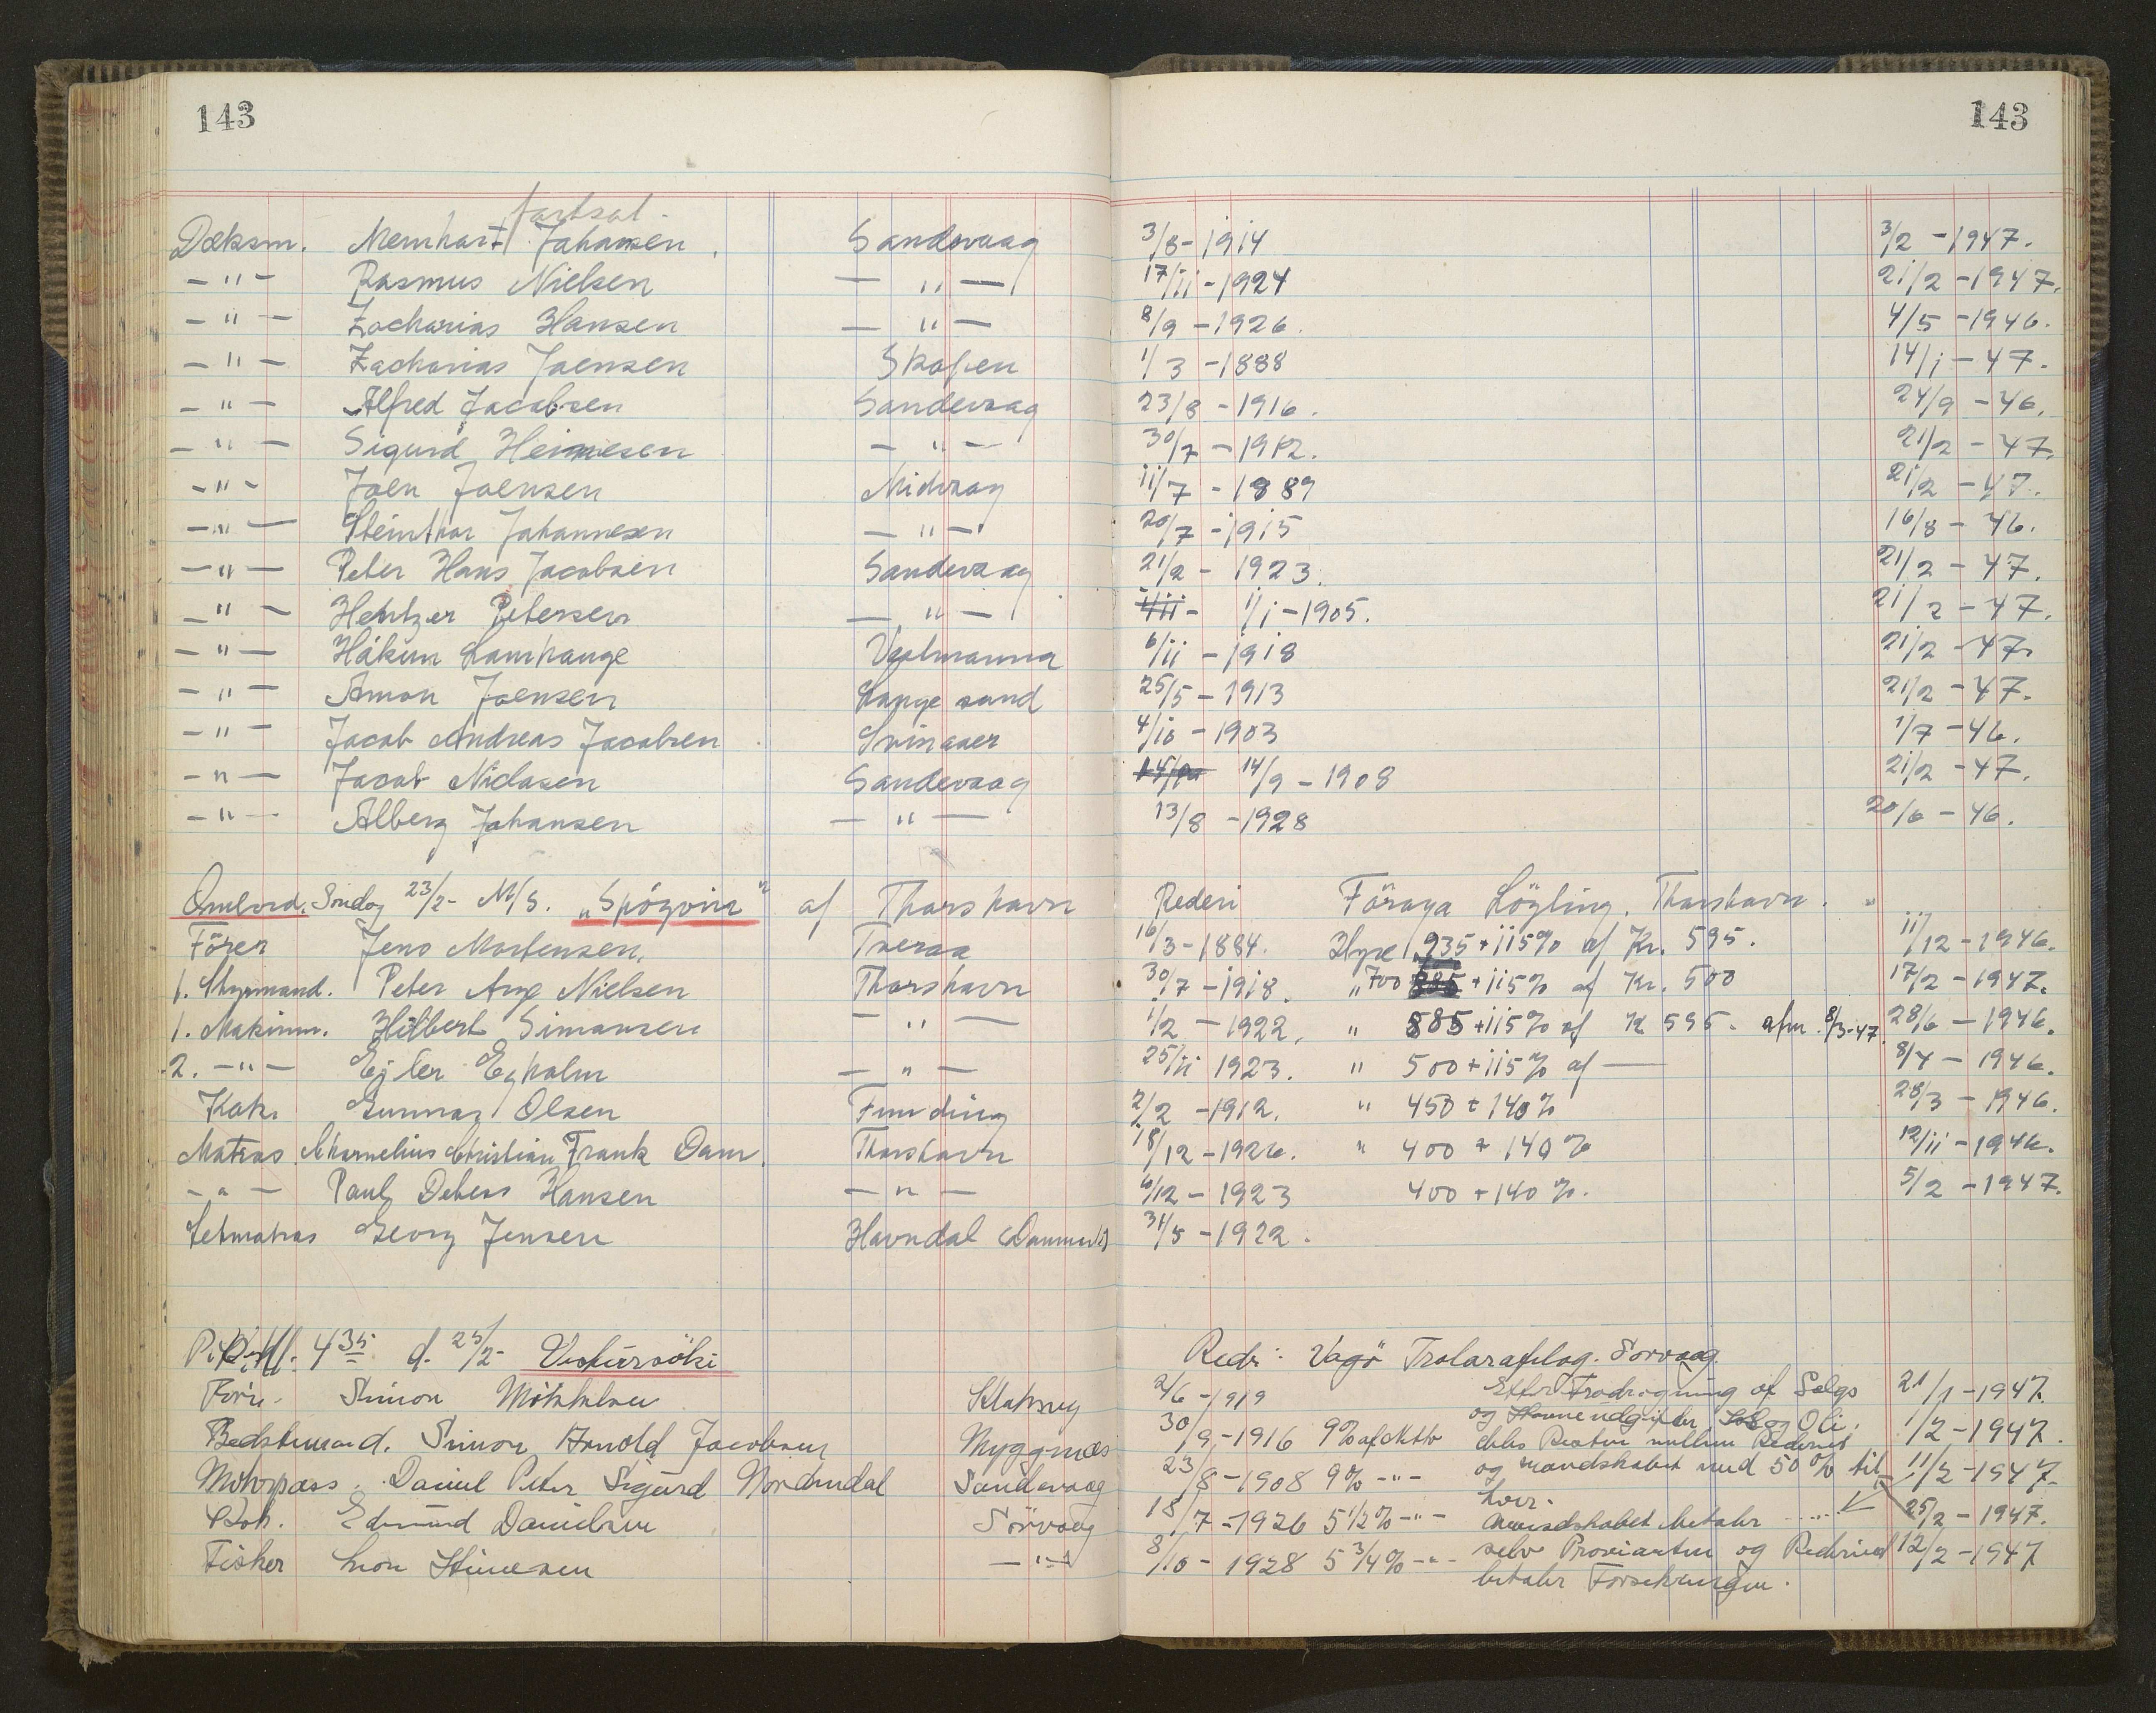 143
143
fortsat.
Dæksm. Meinhart Johansen. Sandevaag 3/8-1914 3/2-1947.
-"- Rasmus Nielsen -"- 17/11-1924 21/2-1947.
-"- Zacharias Hansen -"- 8/9-1926. 4/5-1946.
-"- Zacharias Joensen Skopen 1/3-1888 14/1-47.
-"- Alfred Jacobsen Sandevaag 23/8-1916. 24/9-46.
-"- Sigurd Heinesen -"- 30/7-1912. 21/2-47.
-"- Joen Joensen Midvaag 11/7-1889 21/2-47.
-"- Steinthor Johannesen -"- 20/7-1915 16/8-46.
-"- Peter Hans Jacobsen Sandevaag 21/2-1923. 21/2-47.
-"- Hentzer Petersen -"- 1/1-1905. 21/2-47.
-"- Håkun Lamhauge Vestmanna 6/11-1918 21/2-47.
-"- Amon Joensen Lange sand 25/5-1913 21/2-47.
-"- Jacob Andreas Jacobsen Svinaaer 4/10-1903 1/7-46.
-"- Jacob Niclasen Sandevaag 14/9-1908 21/2-47.
-"- Alberg Johansen -"- 13/8-1928 20/6-46.
Ombord. Söndag 23/2- M/S. "Spógvin" af Thorshavn Rederi Föroya Lögting. Thorshavn.
Förer Jens Mortensen. Tveraa 16/3-1884. Hyre 935+115% af Kr. 595. 11/12-1946.
1. Styrmand. Peter Aage Nielsen Thorshavn 30/7-1918. " 700 +115% af Kr. 500 17/2-1947.
1. Maskinm. Hilbert Simonsen -"- 1/2-1922. " 585+115% af Kr 595. afm. 8/3-47. 28/6-1946.
2. -"- Ejler Egholm -"- 25/11 1923. " 500+115% af — 8/4-1946.
Kok. Gunnar Olsen Funding 2/2-1912. " 450+140% 28/3-1946.
Matros Christian Frank Dam. Thorshavn 18/12-1926. " 400+140% 12/11-1946.
-"- Paul Debess Hansen -"- 6/12-1923 400+140%. 5/2-1947.
Letmatros Georg Jensen Havndal (Danmark) 31/5-1922.
Kl. 4 35 d. 25/2- Vestursöki Redri: Vagö Trolarafelag. Sorvaag.
Förer. Simon Klaksvig 2/6-1919 Efter Fradragning af Salgs 21/1-1947.
og Havneudgifter, og Oli.
Bedstmand. Simon Arnold Jacobsen Myggenæs 30/9-1916 9% af deles Resten mellem Rederiet 1/2-1947.
Motorpass. Daniel Peter Sigurd Nordendal Sandevaag 23/8-1908 9% -"- og Mandskabet med 50% til 11/2-1947.
hver.
Kok. Edmund Danielsen Sörvaag 18/7-1926 5 1/2% -"- Mandskabet betaler 25/2-1947.
Fisker Heinesen -"- 8/10-1928 5 3/4% -"- selv Provianten og Rederiet 12/2-1947
betaler Forsikringen.